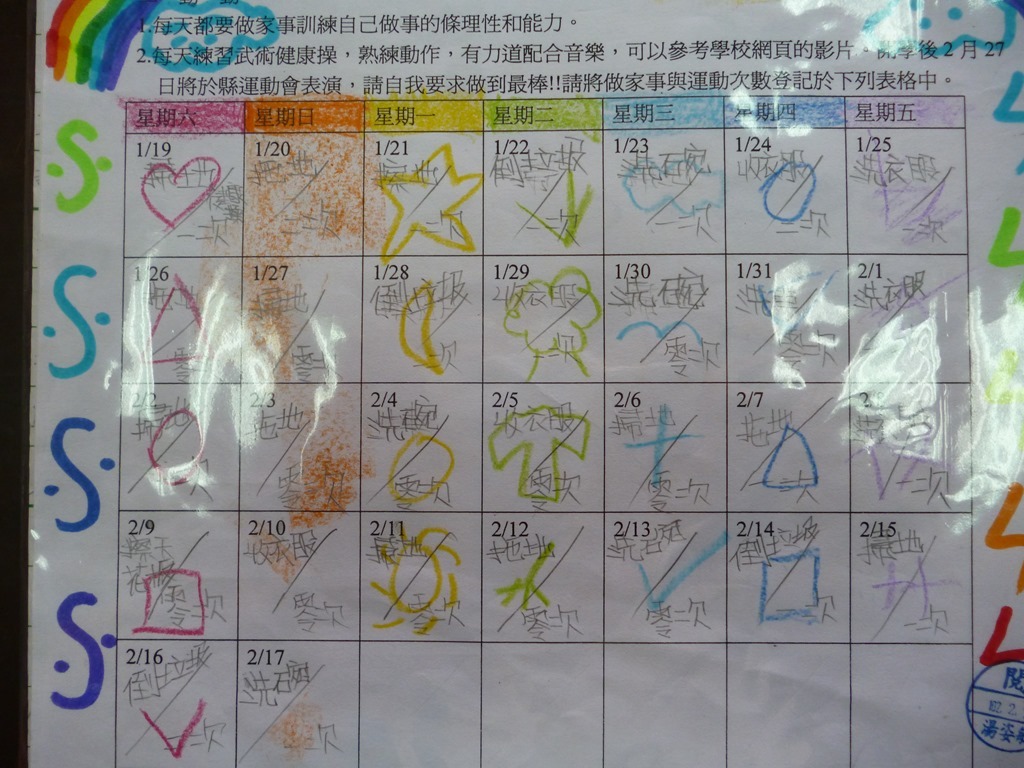 1.每天都要做家事訓練自己做事的條理性和能力。
2.每天練習武術健康操，熟練動作，有力道配合音樂，可以參考學校網頁的影片。開學後2月27
日將於縣運動會表演，請自我要求做到最棒!!請將做家事與運動次數登記於下列表格中。
星期六 星期日 星期一 星期二 星期三 星期四 星期五
1/19 1/20 1/21 1/22 1/23 1/24 1/25
掃地 拖地 擦地 倒垃圾 洗石宛 收衣服 洗衣服
二次 二次 一次 一次 二次 一次
1/26 1/27 1/28 1/29 1/30 1/31 2/1
掃地 倒垃圾 收衣服 洗碗 洗衣服
零 零 一次 二次 零次 零次
2/2 2/3 2/4 2/5 2/6 2/7
掃地 拖地 洗碗 收衣服 掃地 拖地
一次 零次 零次 零次 零次 二次 一次
2/9 2/10 2/11 2/12 2/13 2/14 2/15
收衣服 掃地 拖地 洗碗 倒垃圾 掃地
零次 零次 零次 零次 零次 零次 一次
2/16 2/17
倒垃圾 洗碗
二次 二次
閱
102.2.
湯姿